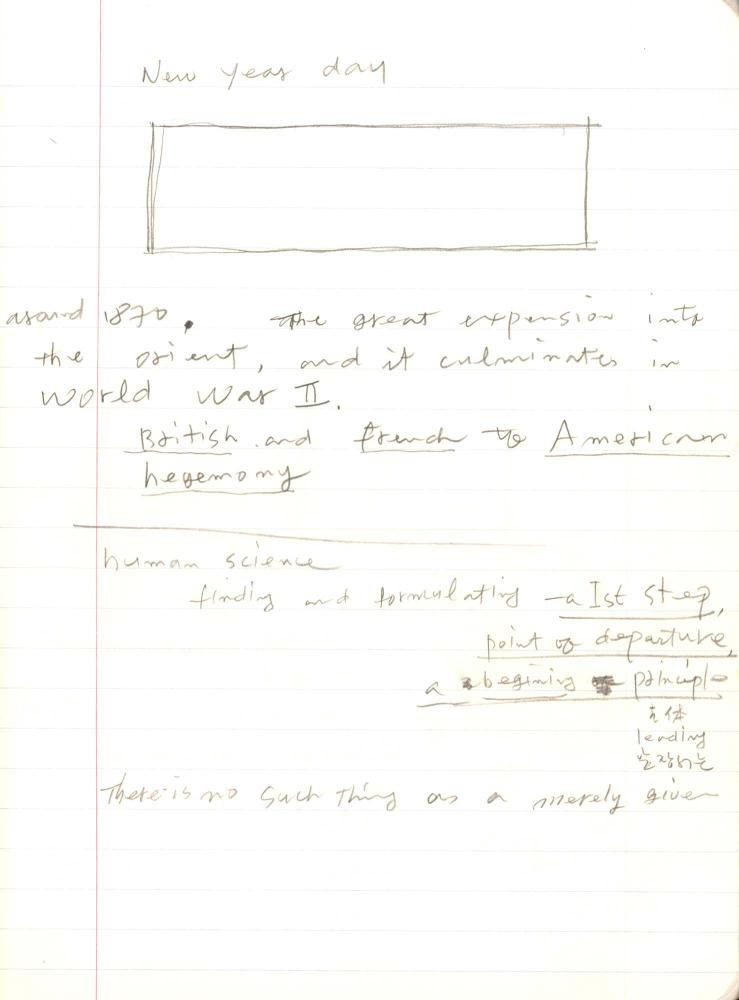 New Year day
around 1870. The great expension into
the orient, and it culminates in
World War II.
British and french to American
hegemony
human science
finding and formulating - a 1st step,
point of departure,
a begining principle
leading
There is no such thing as a merely given